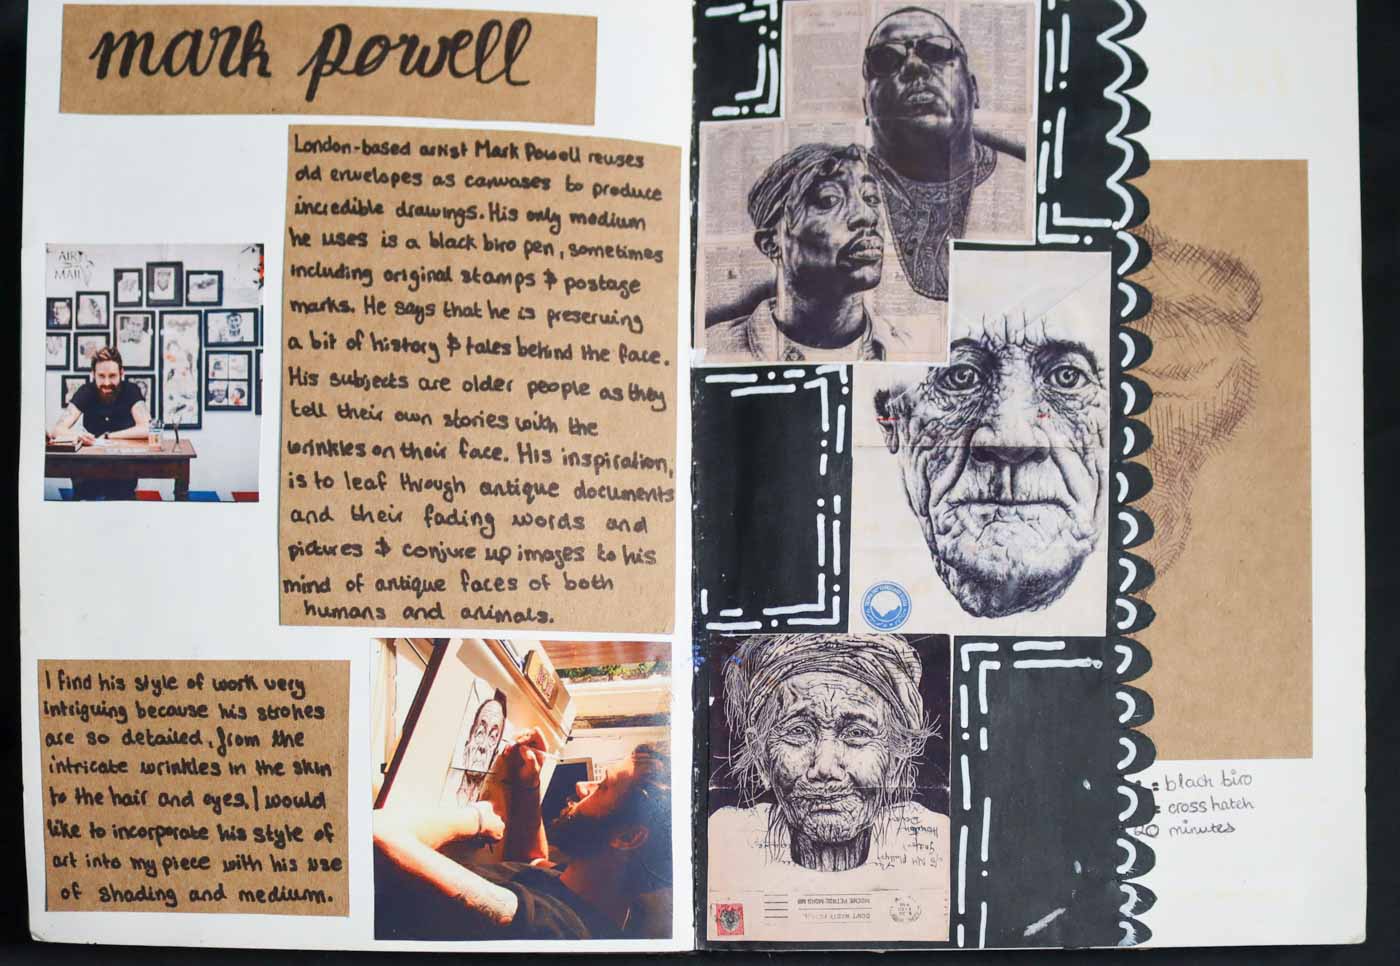 mark powell
London-based artist Mark Powell reuses
old envelopes as canvases to produce
incredible drawings. His only medium
he uses is a black biro pen, sometimes
including original stamps & postage
marks. He says that he is preserving
a bit of history & tales behind the face.
His subjects are older people as they
tell their own stories with the
wrinkles on their face. His inspiration,
is to leaf through antique documents
and their fading words and
pictures & conjure up images to his
mind of antique faces of both
humans and animals.
AIR
MAIL
I find his style of work very
intriguing because his strokes
are so detailed, from the
intricate wrinkles in the skin
to the hair and eyes, I would
like to incorporate his style of
art into my piece with his use
of shading and medium.
black biro
cross hatch
20 minutes